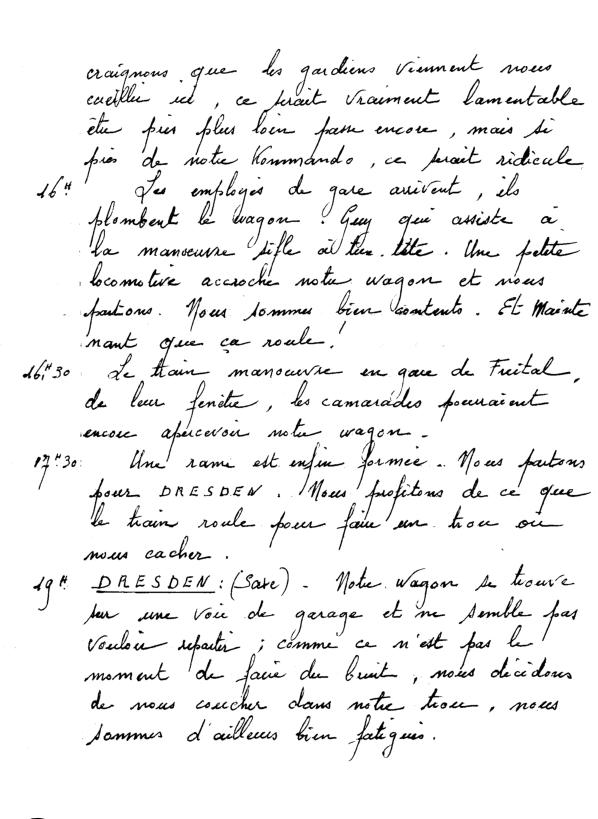 craignons que les gardiens viennent nous
cueillir ici, ce serait vraiment lamentable
être pris plus loin passe encore, mais si
près de notre Kommando, ce serait ridicule
16H Les employés de gare arrivent, ils
plombent le wagon. Guy qui assiste à
la manoeuvre sifle à tue-tête. Une petite
locomotive accroche notre wagon et nous
partons. Nous sommes bien contents. Et Mainte
nant que ça roule!
16H30 Le train manoeuvre en gare de Freital,
de leur fenêtre, les camarades pourraient
encore apercevoir notre wagon.
17H30: Une rame est enfin formée.. Nous partons
pour DRESDEN. Nous profitons de ce que
le train roule pour faire un trou où
nous cacher.
19H DRESDEN: (Saxe) - Notre wagon se trouve
sur une voie de garage et ne semble pas
vouloir repartir; comme ce n'est pas le
moment de faire du bruit, nous décidons
de nous coucher dans notre trou, nous
sommes d'ailleurs bien fatigués.